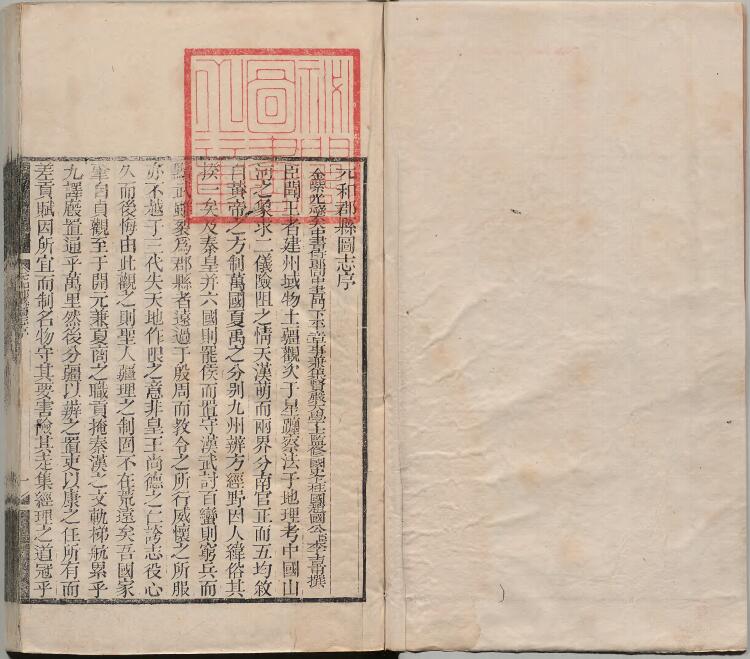 元和郡縣圖志序
金紫光祿大夫中書侍郎同中書門下平章事兼集賢殿大學士監修國史上柱國趙國公李吉甫撰
臣聞王者建州域物土疆觀次于星躔察法于地理考中國山
河之象求二儀險阻之情天漢萌而兩界分南宫正而五均敘
自黃帝之方制萬國夏禹之分别九州辨方經野因人緯俗其
揆一矣及秦皇并六國則罷侯而置守漢武討百蠻則窮兵而
黷武雖梁爲郡縣者遠過于殷周而教令之所行威懷之所服
亦不越于三代失天地作限之意非皇王尚德之仁誇志役心
久而後悔由此觀之則聖人疆理之制固不在荒遠矣吾國家
肇自貞觀至于開元兼夏商之職貢掩秦漢之文軌梯航累乎
九譯廄置通乎萬里然後分疆以辨之置吏以康之任所有而
差貢賦因所宜而制名物守其要害險其走集經理之道冠乎